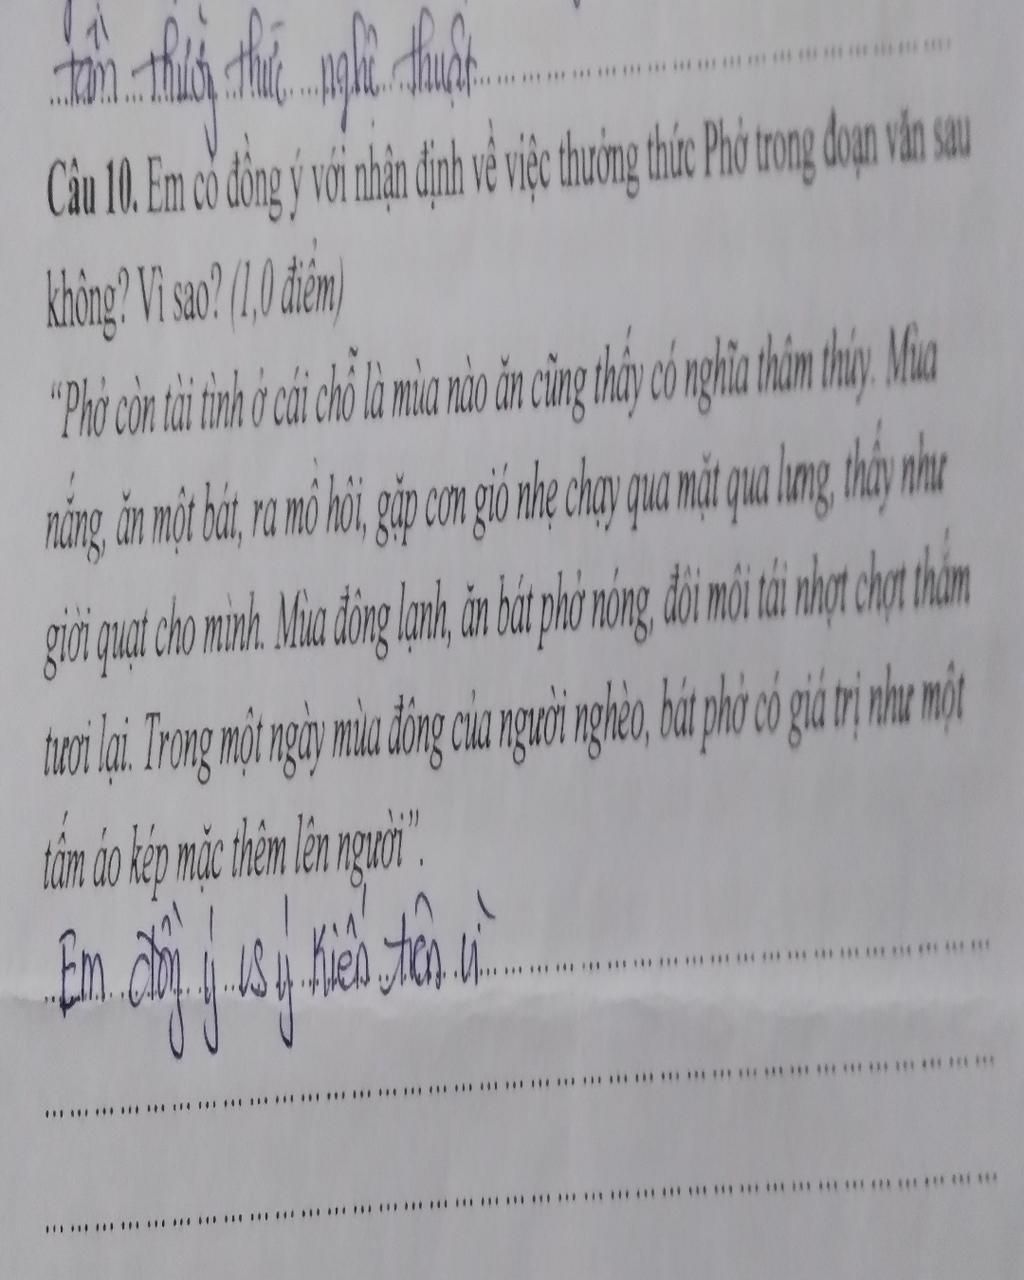 tầm thưởng thức nghê thuật
Câu 10. Em có đồng ý với nhận định về việc thưởng thức Phở trong đoạn văn sau
không? Vì sao? (1,0 điểm)
“Phở còn tài tình ở cái chỗ là mùa nào ăn cũng thấy có nghĩa thâm thúy. Mùa
nắng, ăn một bát, ra mồ hôi, gặp cơn gió nhẹ chạy qua mặt qua lưng, thấy như
giời quạt cho mình. Mùa đông lạnh, ăn bát phở nóng, đôi môi tái nhợt chợt thắm
tươi lại. Trong một ngày mùa đông của người nghèo, bát phở có giá trị như một
tấm áo kép mặc thêm lên người”.
Em đồng ý vs ý kiến trên vì